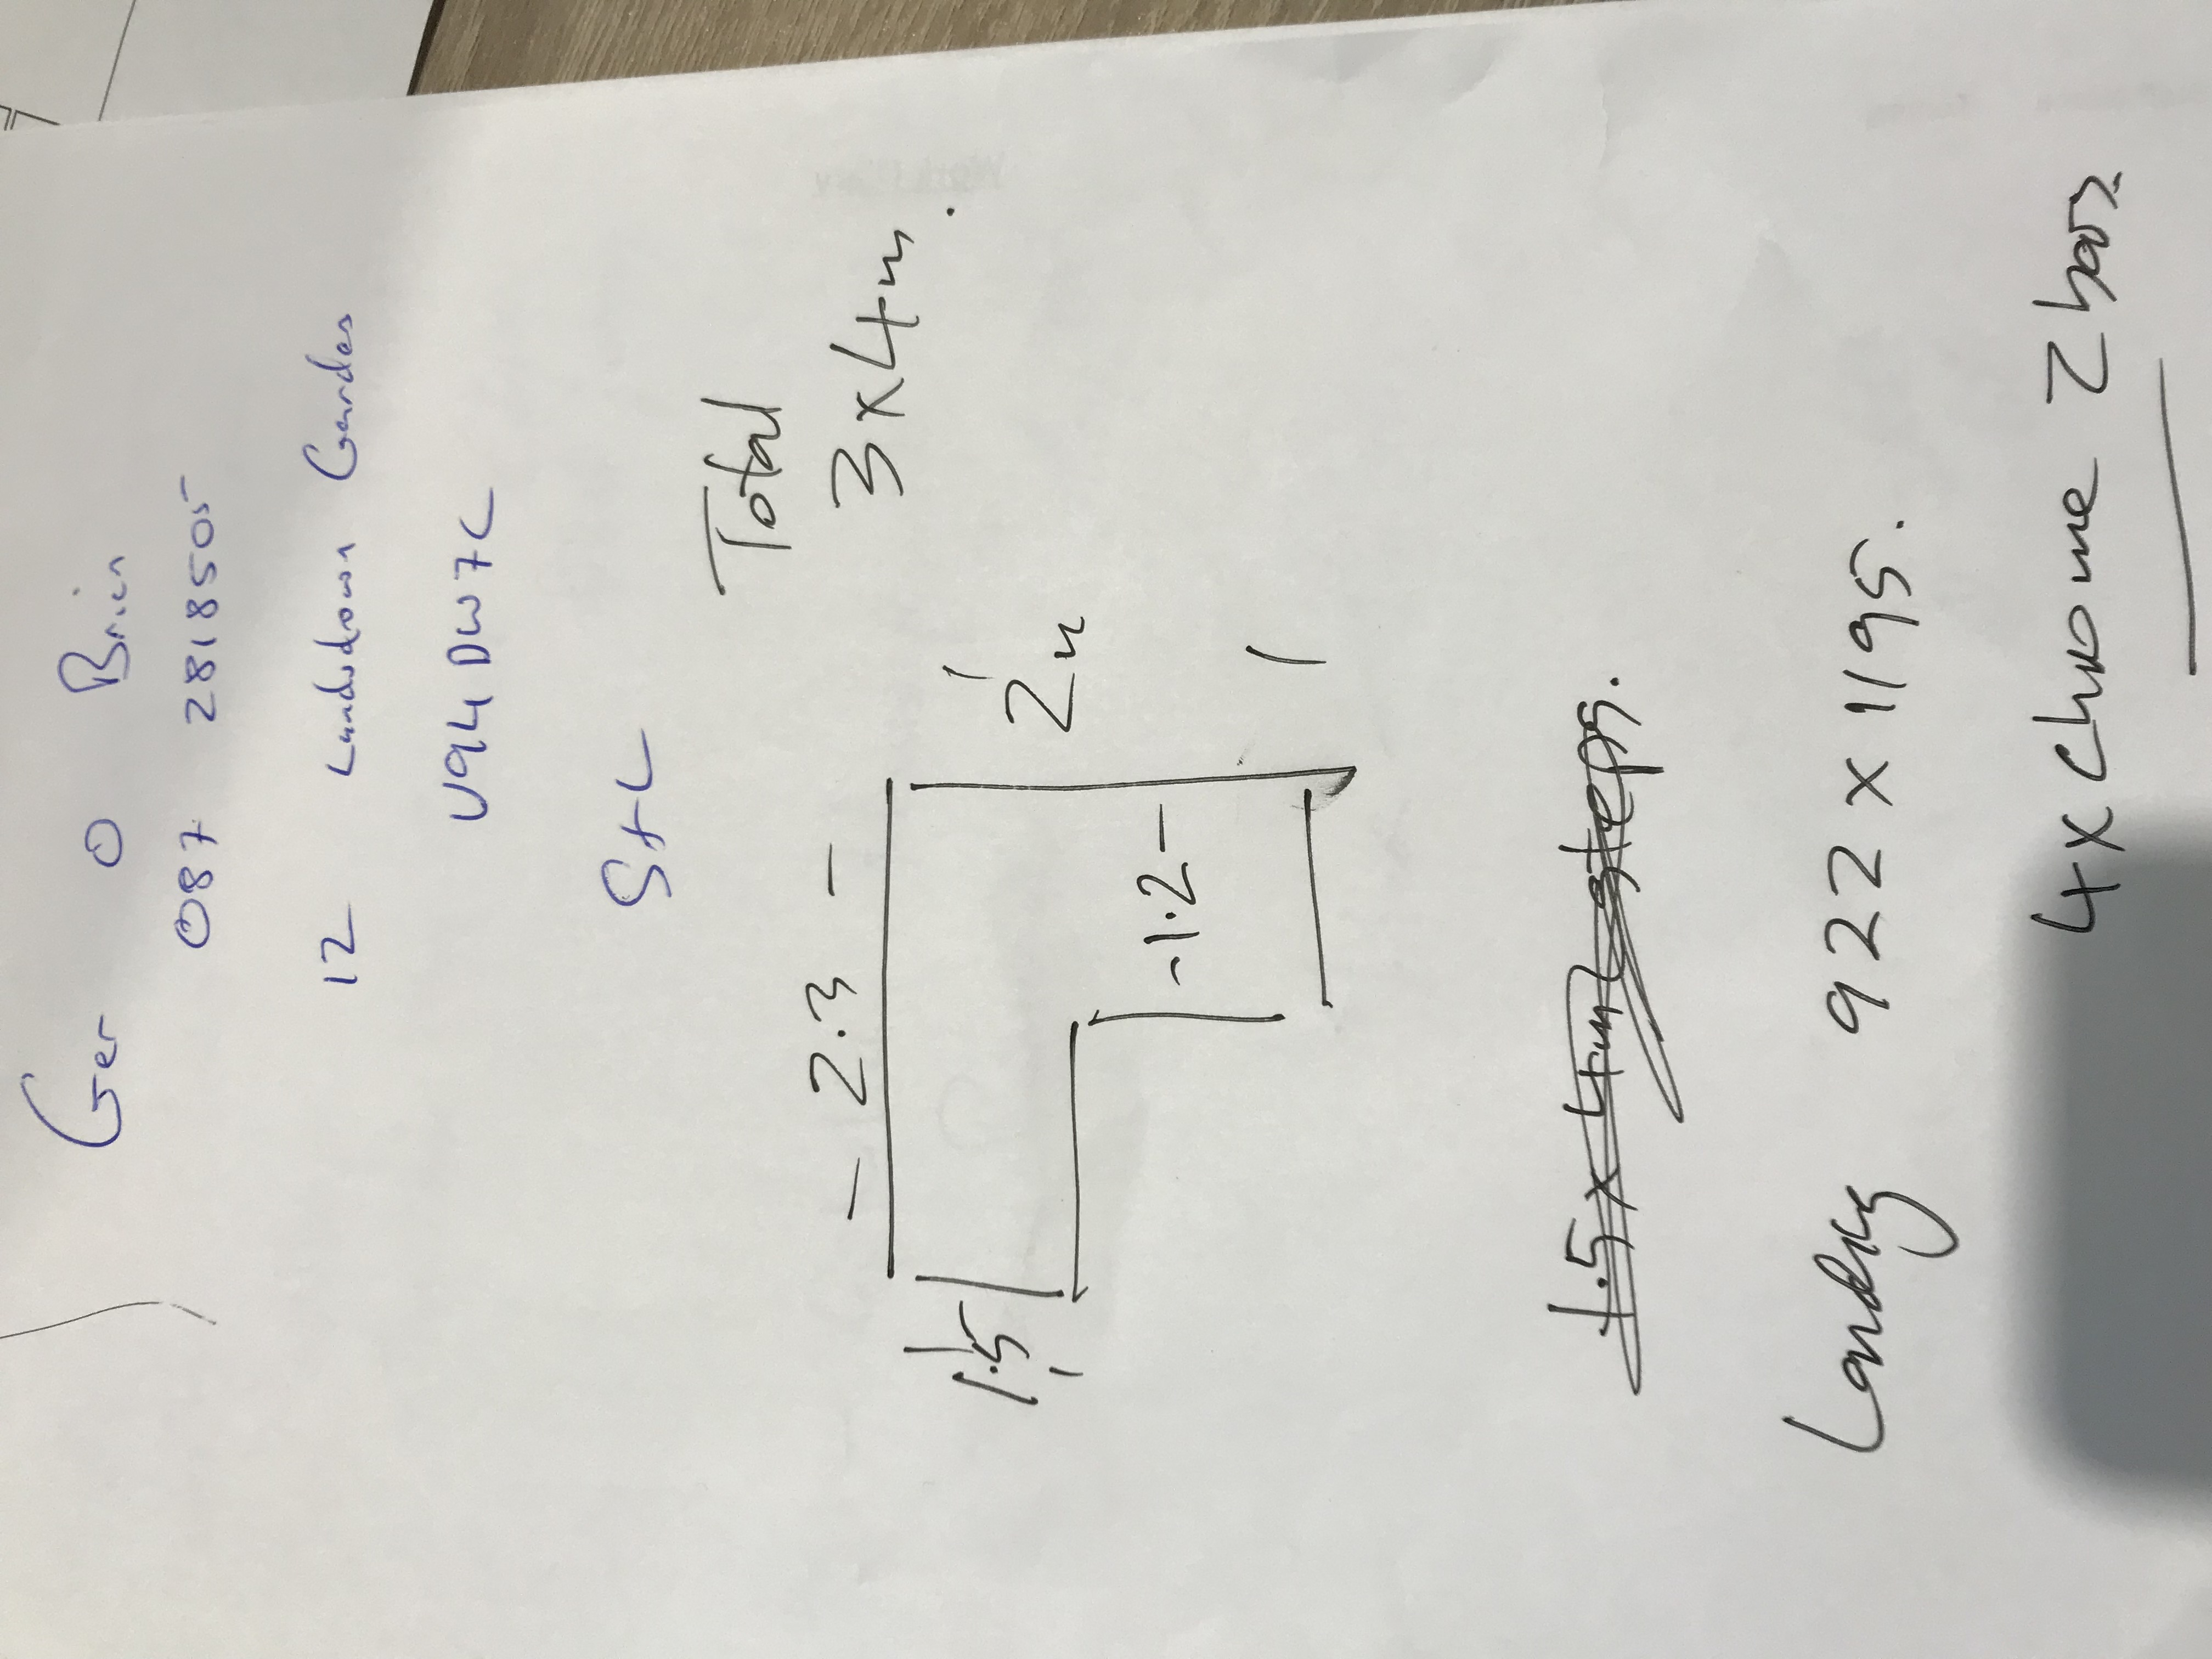 Ger O Brien
087 2818505
12 Landsdown Gardes
V94DW7C
S+L
Total
3x4m.
- 2.3 -
2m
1.5
-1.2-
1.5x4m steps.
Landig 922x1195.
4x Chrome Z bars